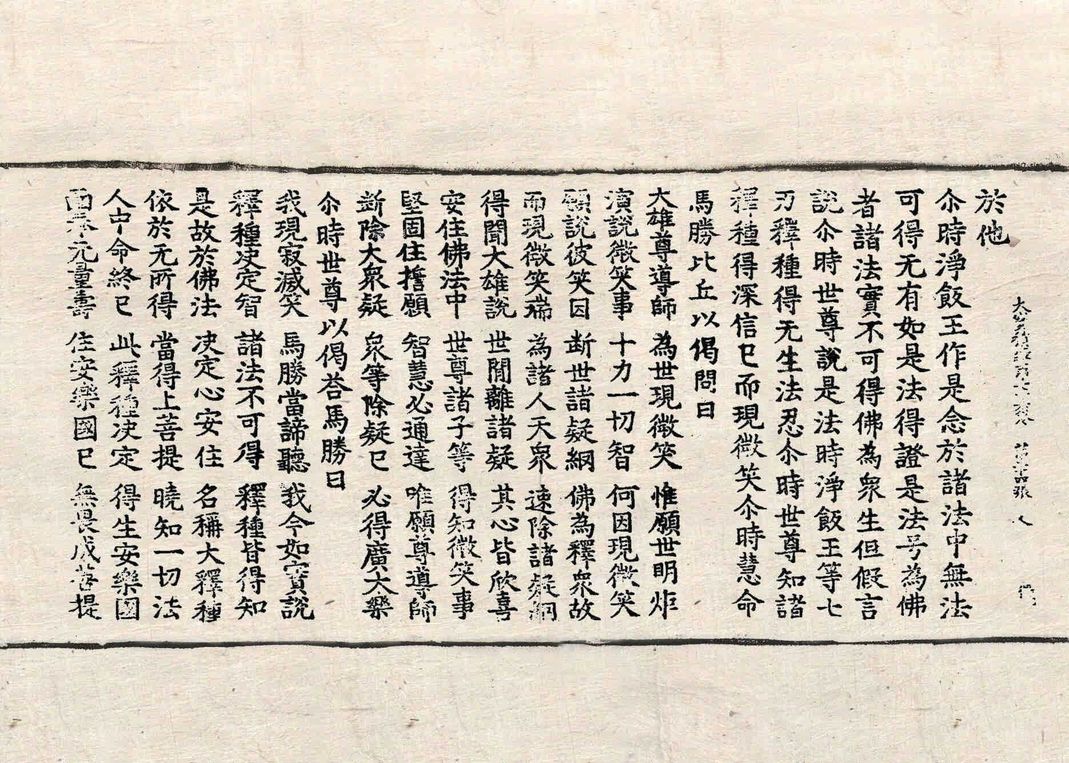 於他
尒時淨飯王作是念於諸法中無法
可得无有如是法得證是法号為佛
者諸法實不可得佛為衆生但假言
說尒時世尊說是法時淨飯王等七
万釋種得无生法忍尒時世尊知諸
釋種得深信已而現微笑尒時慧命
馬勝比丘以偈問曰
大雄尊導師　為世現微笑　惟願世明炬
演說微笑事　十力一切智　何因現微笑
願說彼笑因　断世諸疑網　佛為釋衆故
而現微笑端　為諸人天衆　速除諸疑網
得聞大雄說　世間離諸疑　其心皆欣喜
安住佛法中　世尊諸子等　得知微笑事
堅固住擔願　智慧必通達　唯願尊導師
断除大衆疑　衆等除疑已　必得廣大樂
尒時世尊以偈荅馬勝曰
我現寂滅笑　馬勝當諦聽　我今如實說
釋種决定智　諸法不可得　釋種皆得知
是故於佛法　决定心安住　名稱大釋種
依於无所得　當得上菩提　曉知一切法
人中命終已　此釋種决定　得生安樂國
面奉无量壽　住安樂國已　無畏成菩提